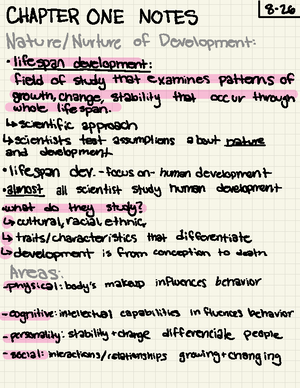 CHAPTER ONE NOTES
8-26
Nature/Nurture of Development:
• lifespan development:
field of study that examines patterns of
growth, change, stability that occur through
whole lifespan.
↳ scientific approach
↳ scientists test assumptions about nature
and development
• lifespan dev. - focus on human development
• almost all scientist study human development
• what do they study?
↳ cultural, racial, ethnic,
↳ traits/characteristics that differentiate
↳ development is from conception to death
Areas:
- physical: body's makeup influences behavior
- cognitive: intellectual capabilities influences behavior
- personality: stability + change differenciale people
- social: interactions/relationships growing + changing